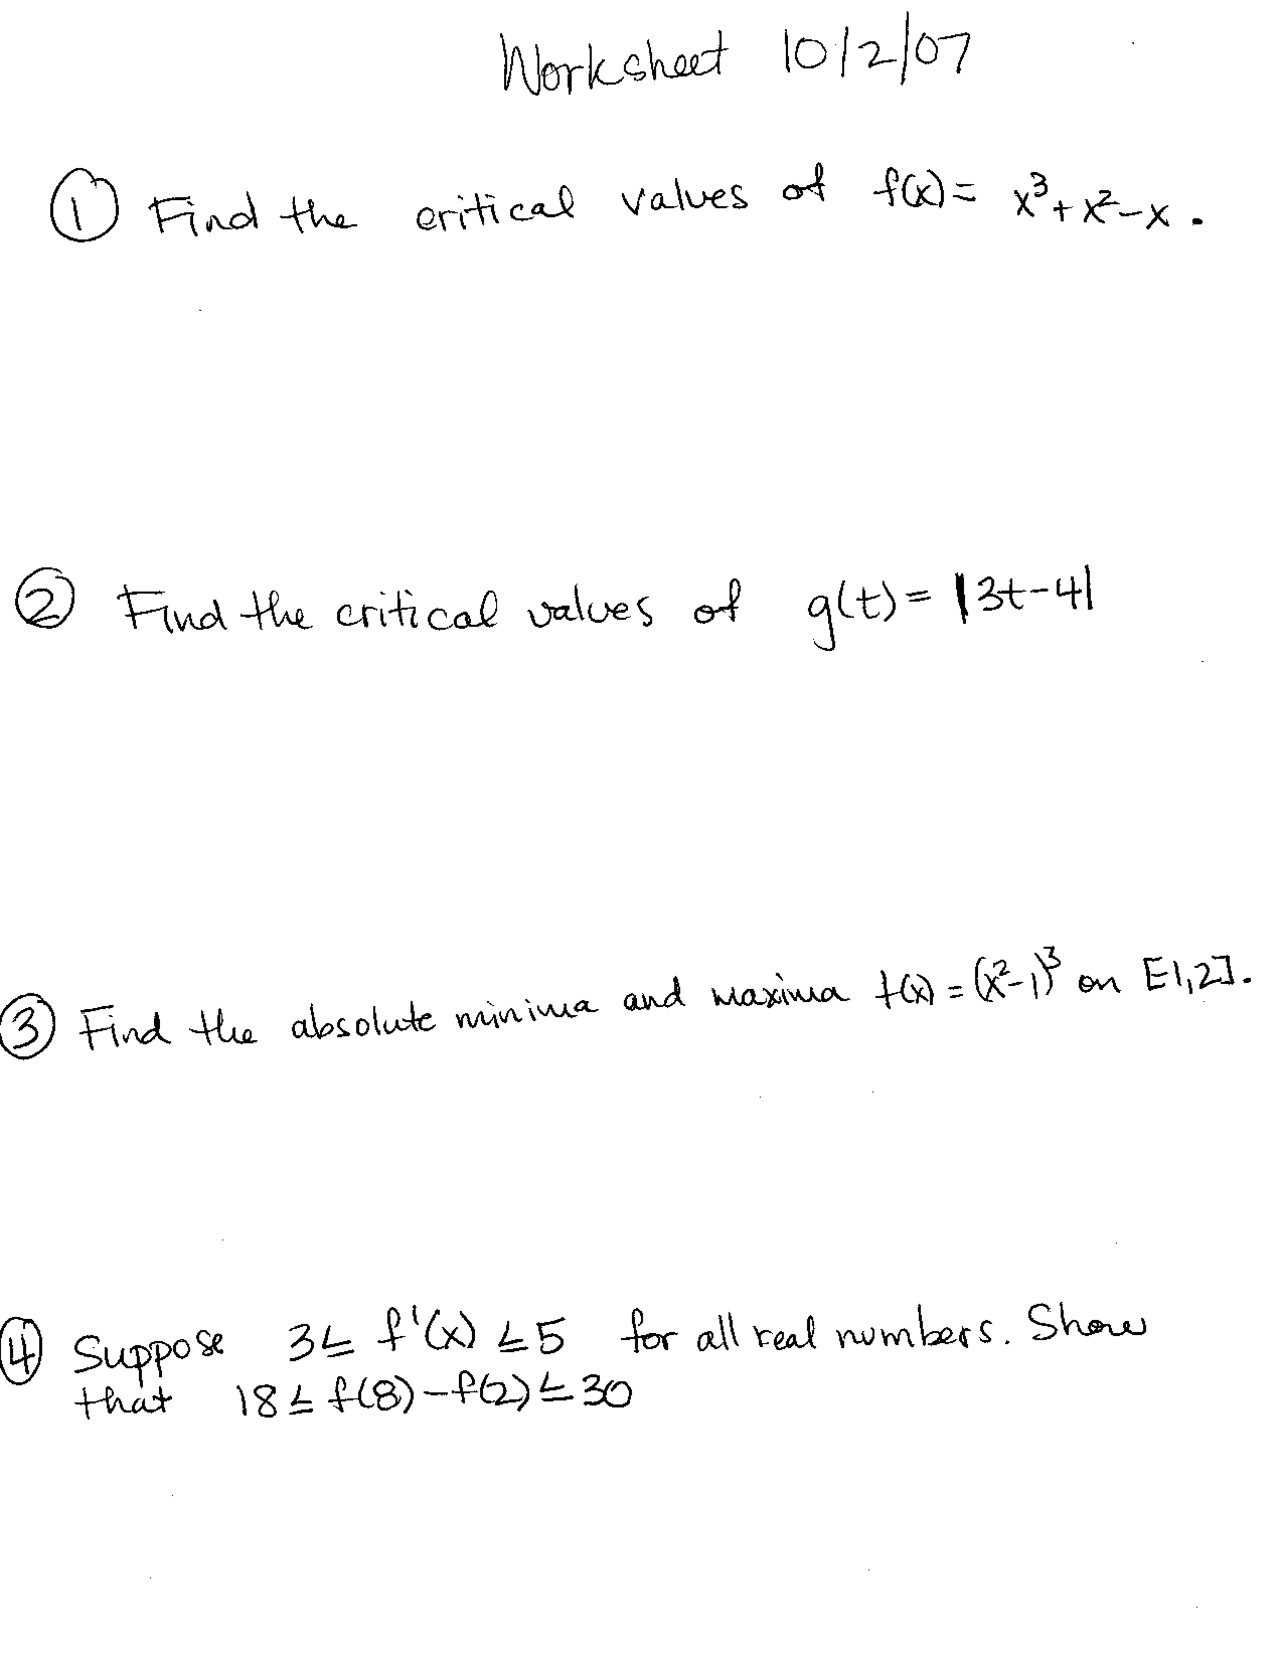 Worksheet 10/2/07
① Find the critical values of f(x) = x³ + x² - x.
② Find the critical values of g(t) = |3t-4|
③ Find the absolute minima and maxima f(x) = (x²-1)³ on [1,2].
④ Suppose 3 ≤ f'(x) ≤ 5 for all real numbers. Show
that 18 ≤ f(8) - f(2) ≤ 30